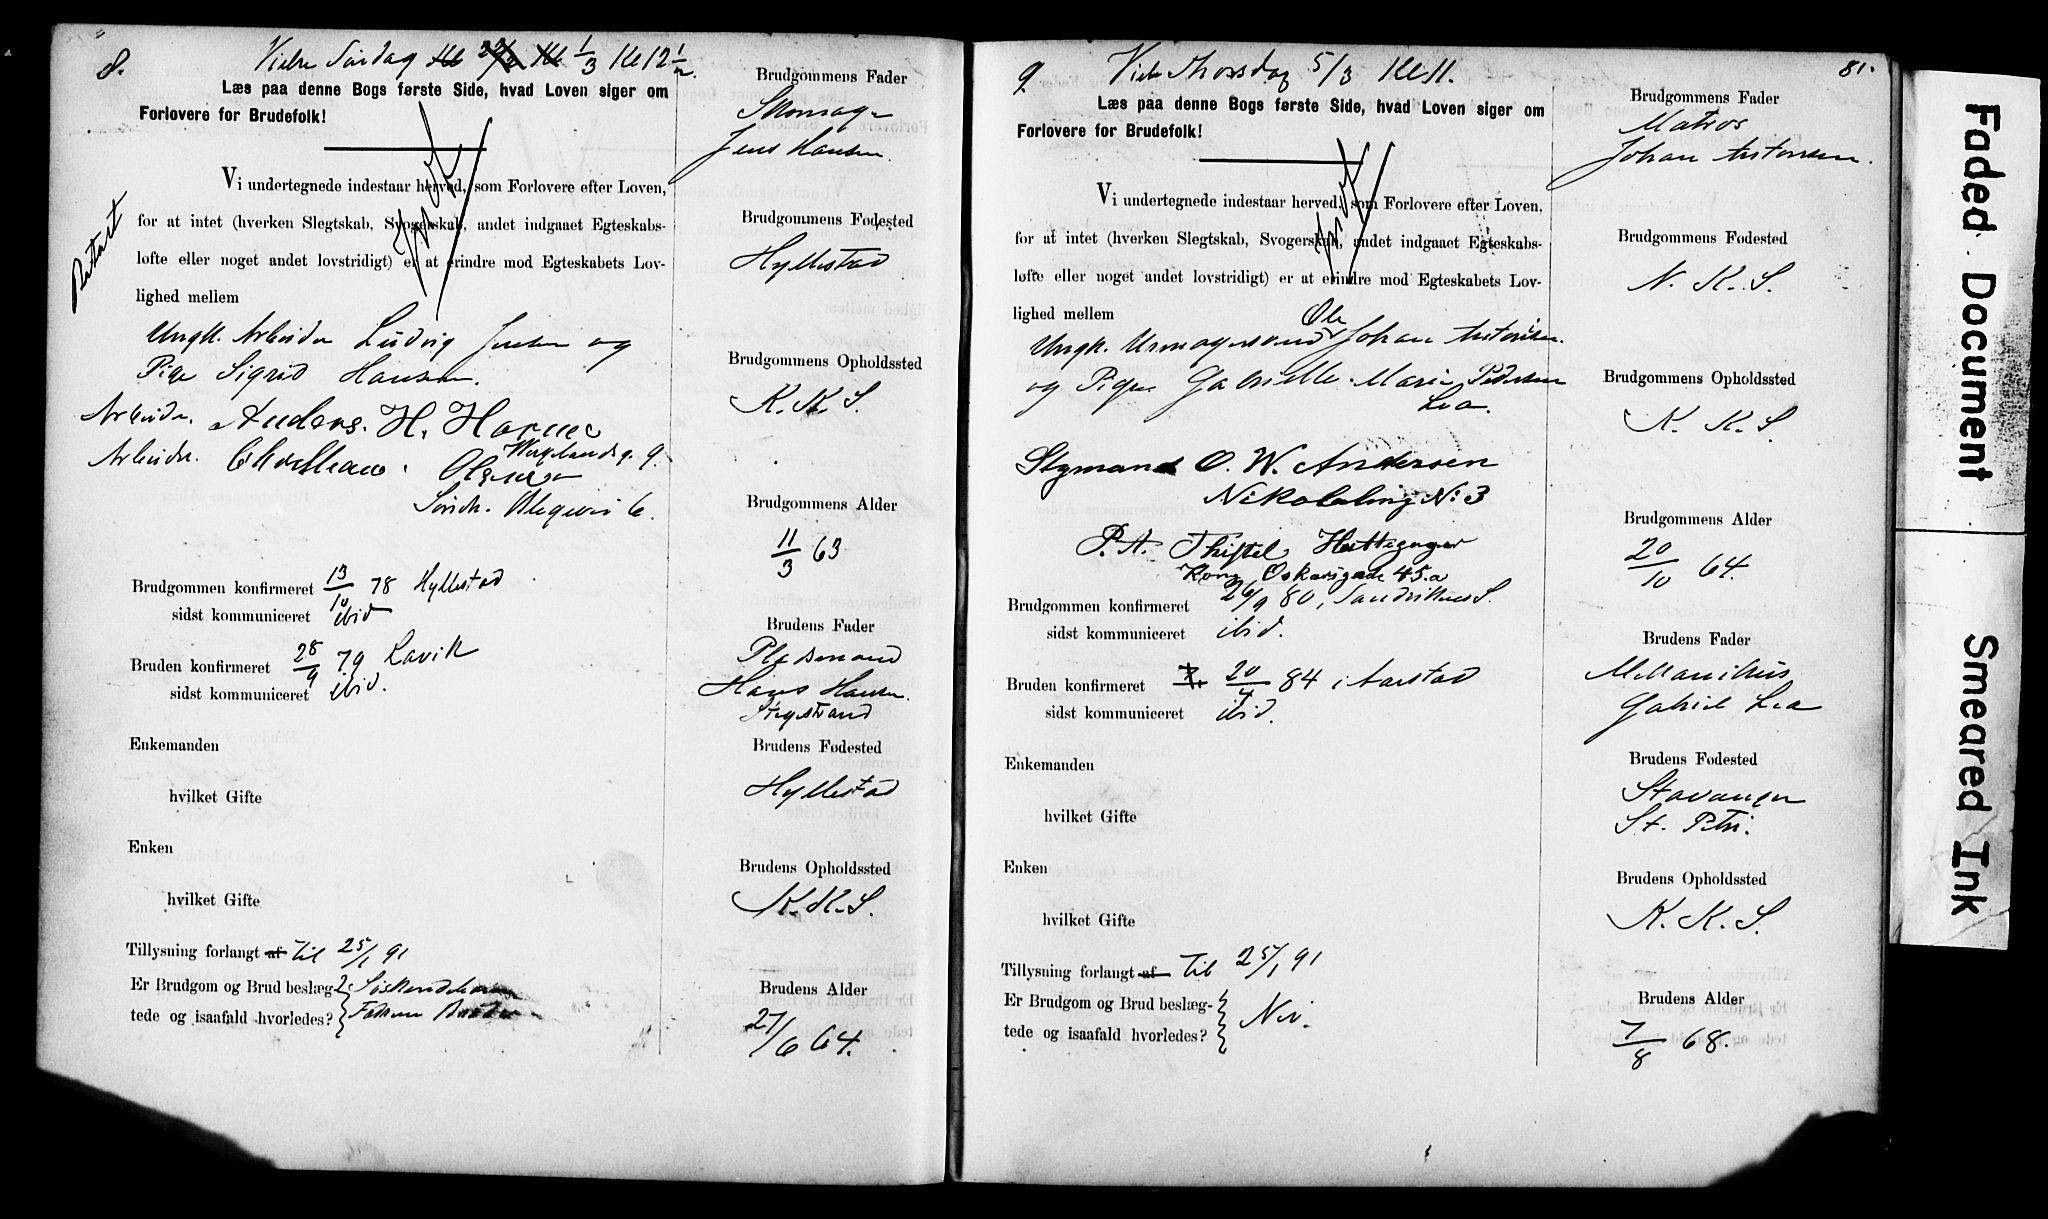 8.
Vielse Søndag Kl 1/3 Kl 12 1/2.
Læs paa denne Bogs første Side, hvad Loven siger om
Forlovere for Brudefolk!
Vi undertegnede indestaar herved, som Forlovere efter Loven,
for at intet (hverken Slegtskab, Svogerskab, andet indgaaet Egteskabs-
løfte eller noget andet lovstridigt) er at erindre mod Egteskabets Lov-
lighed mellem
Ungk. Arbeider Ludvig Jensen og
Pige Sigrid Hansen.
Arbeider. Anders. H.
Arbeider. Olsen
Wergelandsg. 9.
6.
Brudgommen konfirmeret 13/10 78 Hyllestad
sidst kommuniceret ibid
Bruden konfirmeret 28/9 79 Lavik
sidst kommuniceret ibid.
Enkemanden
hvilket Gifte
Enken
hvilket Gifte
Tillysning forlangt af til 25/1 91
Er Brudgom og Brud beslæg-
tede og isaafald hvorledes?
Søskendebørn
Brudgommens Fader
Skomager
Jens Hansen.
Brudgommens Fødested
Hyllestad
Brudgommens Opholdssted
K. K. S.
Brudgommens Alder
11/3 63
Brudens Fader
Pladsmand
Hans Hansen.
Brudens Fødested
Hyllestad
Brudens Opholdssted
K. K. S.
Brudens Alder
27/6 64.
9
Vielse Thorsdag 5/3 Kl 11.
81.
Læs paa denne Bogs første Side, hvad Loven siger om
Forlovere for Brudefolk!
Vi undertegnede indestaar herved, som Forlovere efter Loven,
for at intet (hverken Slegtskab, Svogerskab, andet indgaaet Egteskabs-
løfte eller noget andet lovstridigt) er at erindre mod Egteskabets Lov-
lighed mellem
Ole
Ungk. Urmagersvend Johan Antonsen.
og Pige Gabrielle Marie Pedersen
Lea.
Stymand O. W. Andersen
No 3
P. A. Thistel
Kong Oskarsgade 45.a
Brudgommen konfirmeret 26/9 80 i Sandvikens S.
sidst kommuniceret ibid.
Bruden konfirmeret 20/4 84 i Aarstad
sidst kommuniceret ibid.
Enkemanden
hvilket Gifte
Enken
hvilket Gifte
Tillysning forlangt af til 25/1 91
Er Brudgom og Brud beslæg-
tede og isaafald hvorledes?
Nei.
Brudgommens Fader
Matros
Johan Antonsen.
Brudgommens Fødested
N. K. S.
Brudgommens Opholdssted
K. K. S.
Brudgommens Alder
20/10 64.
Brudens Fader
Mekanikus
Gabriel Lea
Brudens Fødested
Stavanger
St. Petri.
Brudens Opholdssted
K. K. S.
Brudens Alder
7/8 68.
Faded Document
Smeared Ink